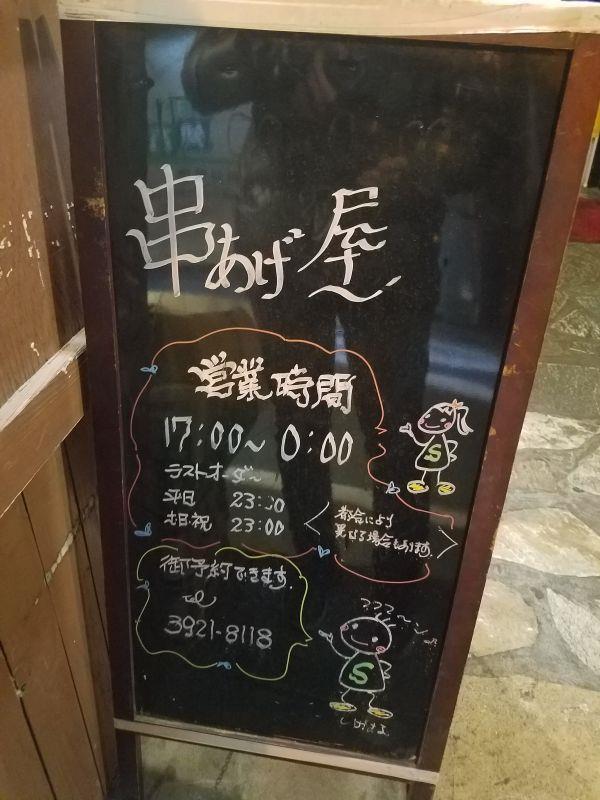 串あげ屋
営業時間
17:00〜 0:00
ラストオーダー
平日 23:30
土日・祝 23:00
都合により
異なる場合もあります。
御予約できます。
tel
3921-8118
S
???〜
S